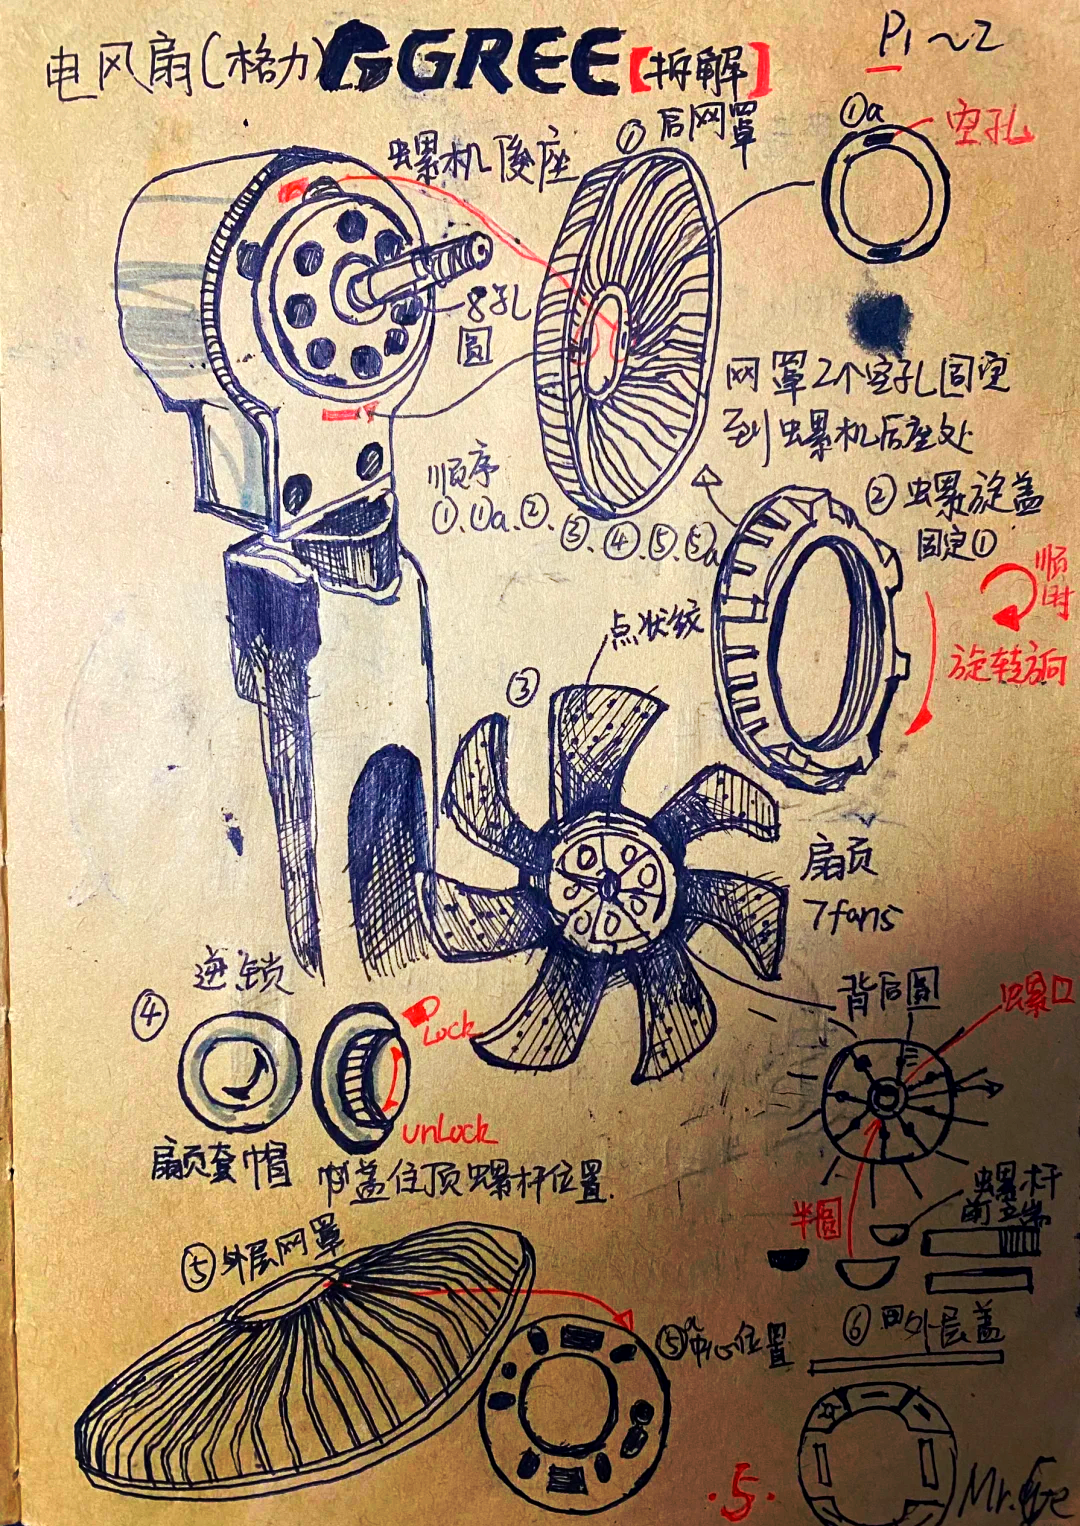 电风扇(格力) GGREE【拆解】
P1~2
螺机後座
① 后网罩
①a
空孔
8孔
圆
网罩2个空孔固定
到螺机后座处
顺序
①、①a、②、③、④、⑤、⑤a
② 螺旋盖
固定①
顺时
旋转方向
点状纹
③
扇页
7fans
背后圆
螺口
④
Lock
unLock
扇页套帽
帽盖住顶螺杆位置.
半圆
螺杆
前端
⑤ 外层网罩
⑤a 中心位置
外层盖
⑥
·5·